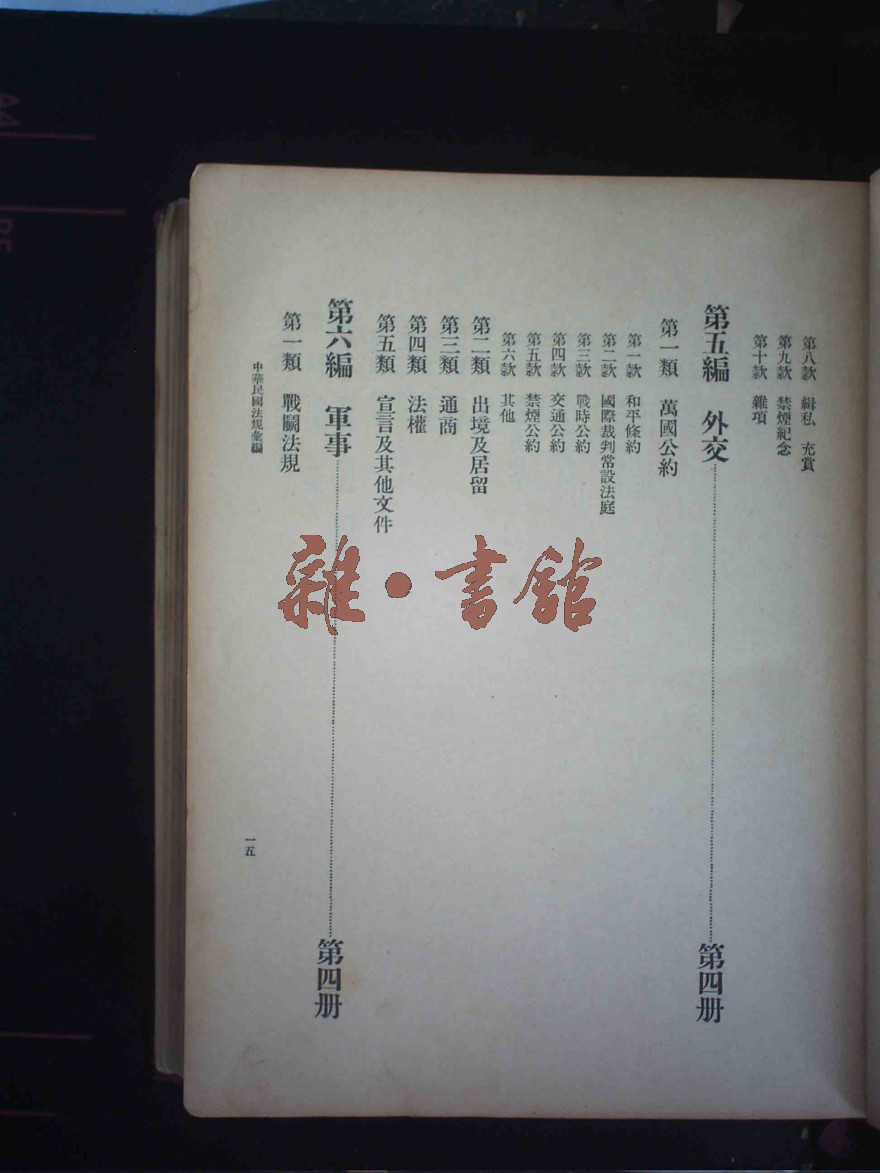 第八款　緝私　充賞
第九款　禁煙紀念
第十款　雜項
第五編　外交……第四册
第一類　萬國公約
第一款　和平條約
第二款　國際裁判常設法庭
第三款　戰時公約
第四款　交通公約
第五款　禁煙公約
第六款　其他
第二類　出境及居留
第三類　通商
第四類　法權
第五類　宣言及其他文件
第六編　軍事……第四册
第一類　戰鬭法規
中華民國法規彙編
一五
雜·書館